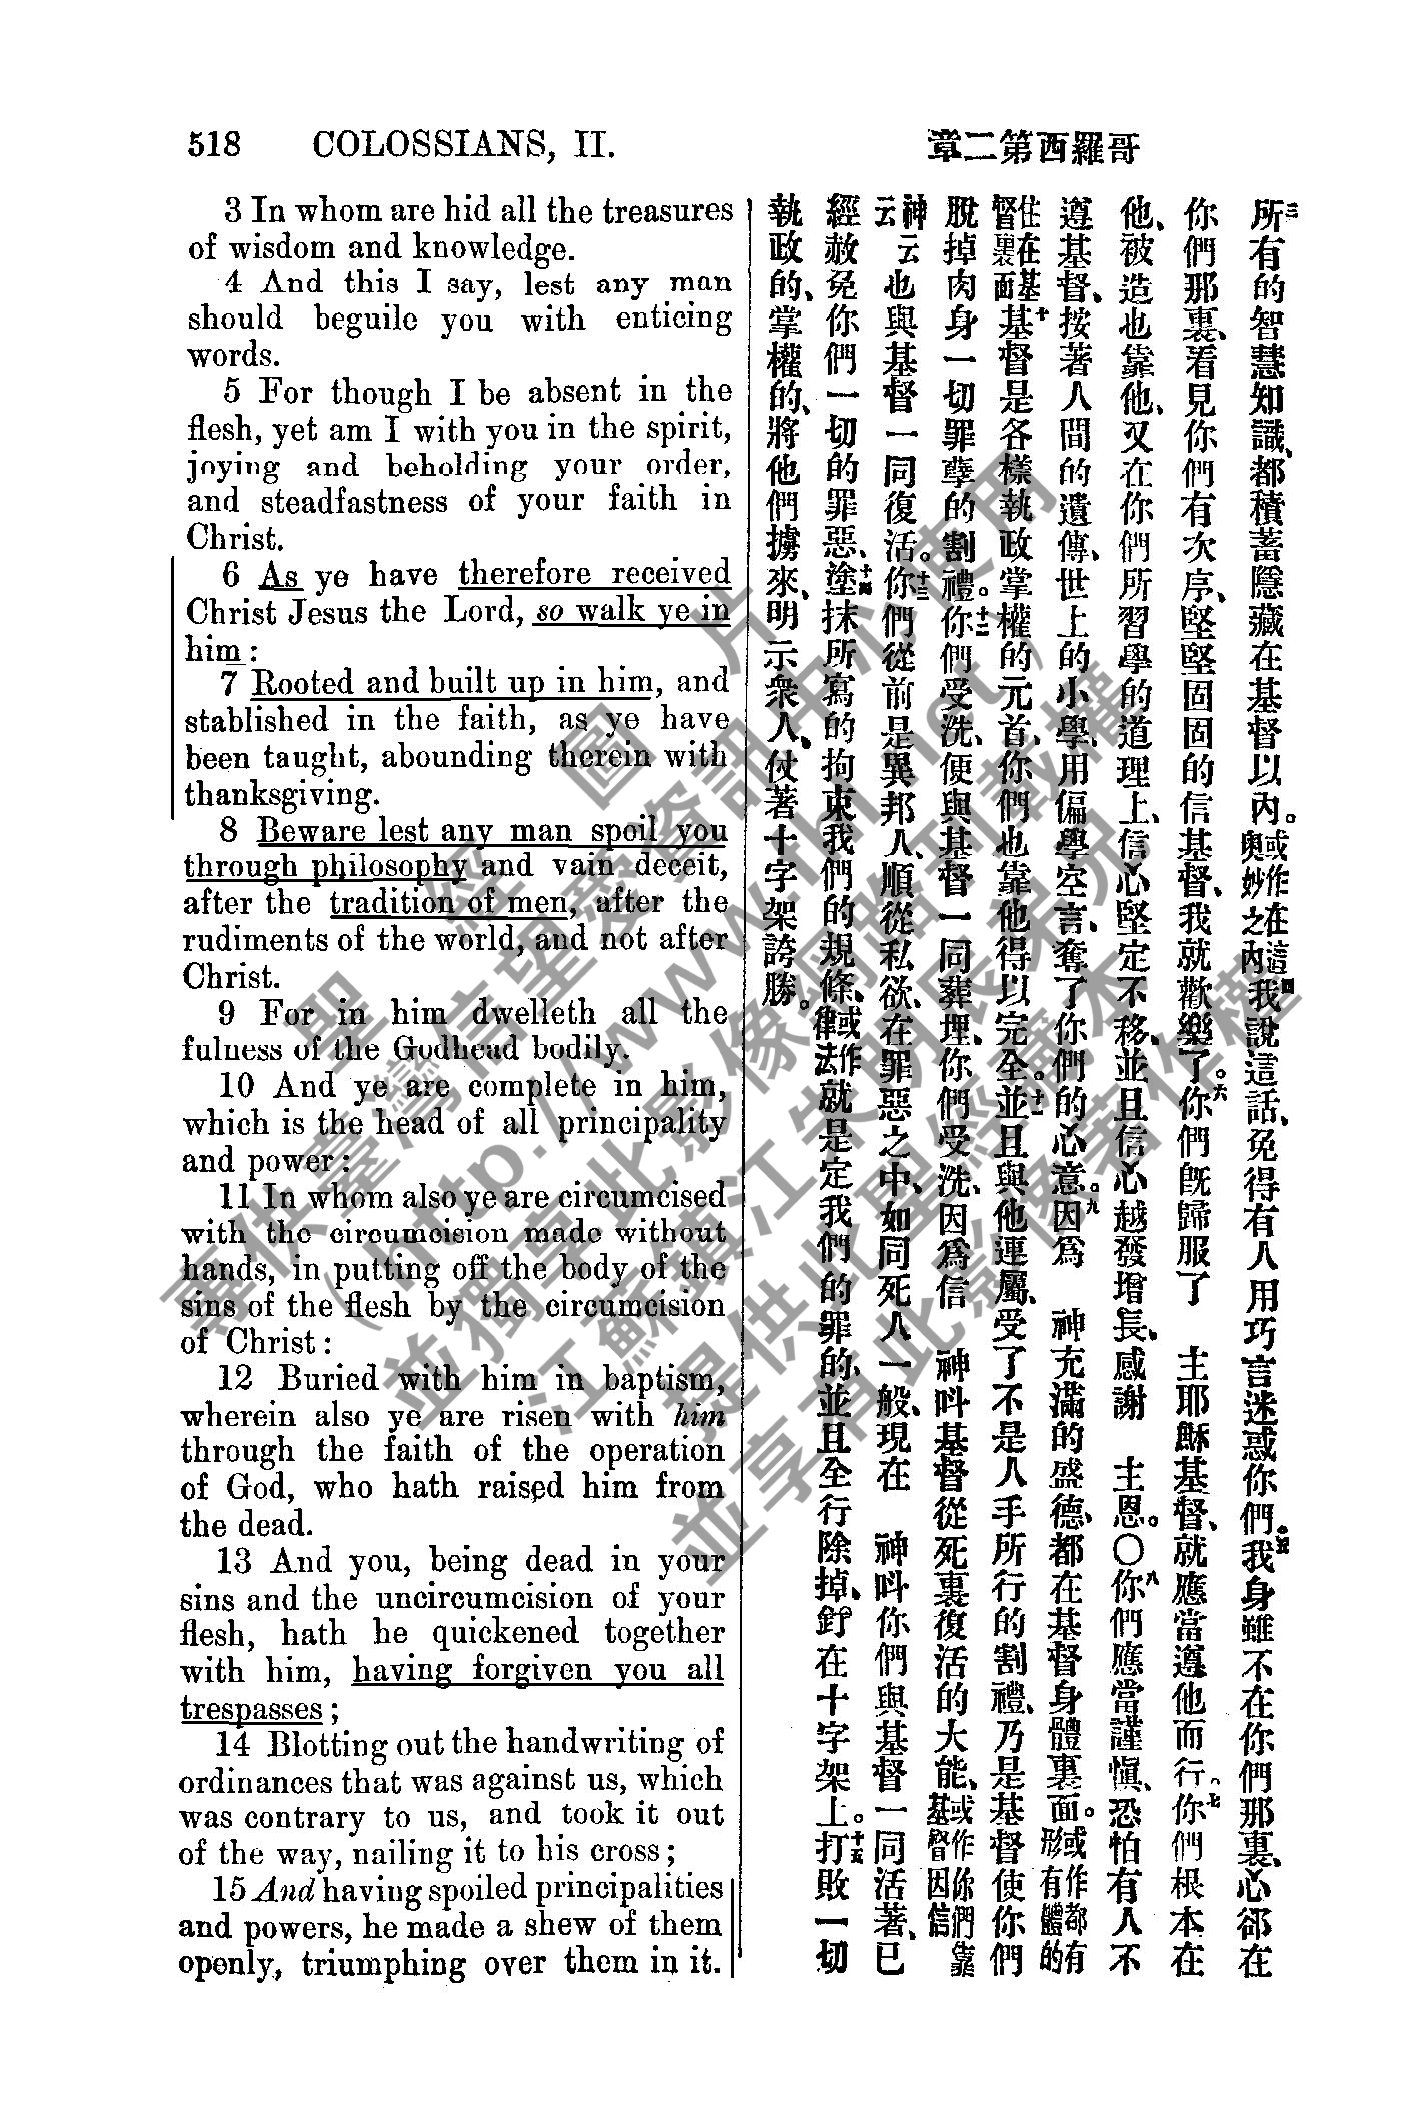 518 COLOSSIANS, II.
哥羅西第二章
3 In whom are hid all the treasures
of wisdom and knowledge.
4 And this I say, lest any man
should beguile you with enticing
words.
5 For though I be absent in the
flesh, yet am I with you in the spirit,
joying and beholding your order,
and steadfastness of your faith in
Christ.
6 As ye have therefore received
Christ Jesus the Lord, so walk ye in
him:
7 Rooted and built up in him, and
stablished in the faith, as ye have
been taught, abounding therein with
thanksgiving.
8 Beware lest any man spoil you
through philosophy and vain deceit,
after the tradition of men, after the
rudiments of the world, and not after
Christ.
9 For in him dwelleth all the
fulness of the Godhead bodily.
10 And ye are complete in him,
which is the head of all principality
and power:
11 In whom also ye are circumcised
with the circumcision made without
hands, in putting off the body of the
sins of the flesh by the circumcision
of Christ:
12 Buried with him in baptism,
wherein also ye are risen with him
through the faith of the operation
of God, who hath raised him from
the dead.
13 And you, being dead in your
sins and the uncircumcision of your
flesh, hath he quickened together
with him, having forgiven you all
trespasses;
14 Blotting out the handwriting of
ordinances that was against us, which
was contrary to us, and took it out
of the way, nailing it to his cross;
15 And having spoiled principalities
and powers, he made a shew of them
openly, triumphing over them in it.
三所有的智慧知識、都積蓄隱藏在基督以內。或作在這奧妙之內四我說這話、免得有人用巧言迷惑你們。五我身雖不在你們那裏、心卻在
你們那裏、看見你們有次序、堅堅固固的信基督、我就歡樂了。六你們旣歸服了 主耶穌基督、就應當遵他而行。七你們根本在
他、被造也靠他、又在你們所習學的道理上、信心堅定不移、並且信心越發增長、感謝 主恩。〇八你們應當謹愼、恐怕有人不
遵基督、按著人間的遺傳、世上的小學、用偏學空言、奪了你們的心意。九因爲 神充滿的盛德、都在基督身體裏面。或作都有形有體的
住在基督裏面十基督是各樣執政掌權的元首、你們也靠他得以完全。十一並且與他連屬、受了不是人手所行的割禮、乃是基督使你們
脫掉肉身一切罪孽的割禮。十二你們受洗、便與基督一同葬埋、你們受洗、因爲信 神呌基督從死裏復活的大能、或作你們靠基督因信
神云云也與基督一同復活。十三你們從前是異邦人、順從私欲、在罪惡之中、如同死人一般、現在 神呌你們與基督一同活著、已
經赦免你們一切的罪惡、十四塗抹所寫的拘束我們的規條、或作律法就是定我們的罪的、並且全行除掉、釘在十字架上。十五打敗一切
執政的、掌權的、將他們擄來、明示衆人、仗著十字架誇勝。
聖經圖片
專供臺灣信望愛資訊中心使用
(http://www.fhl.net/)
並獨享此影像網路刊載權
江蘇鎮江朱明民弟兄
提供此聖經繪本
並享有此影像著作權